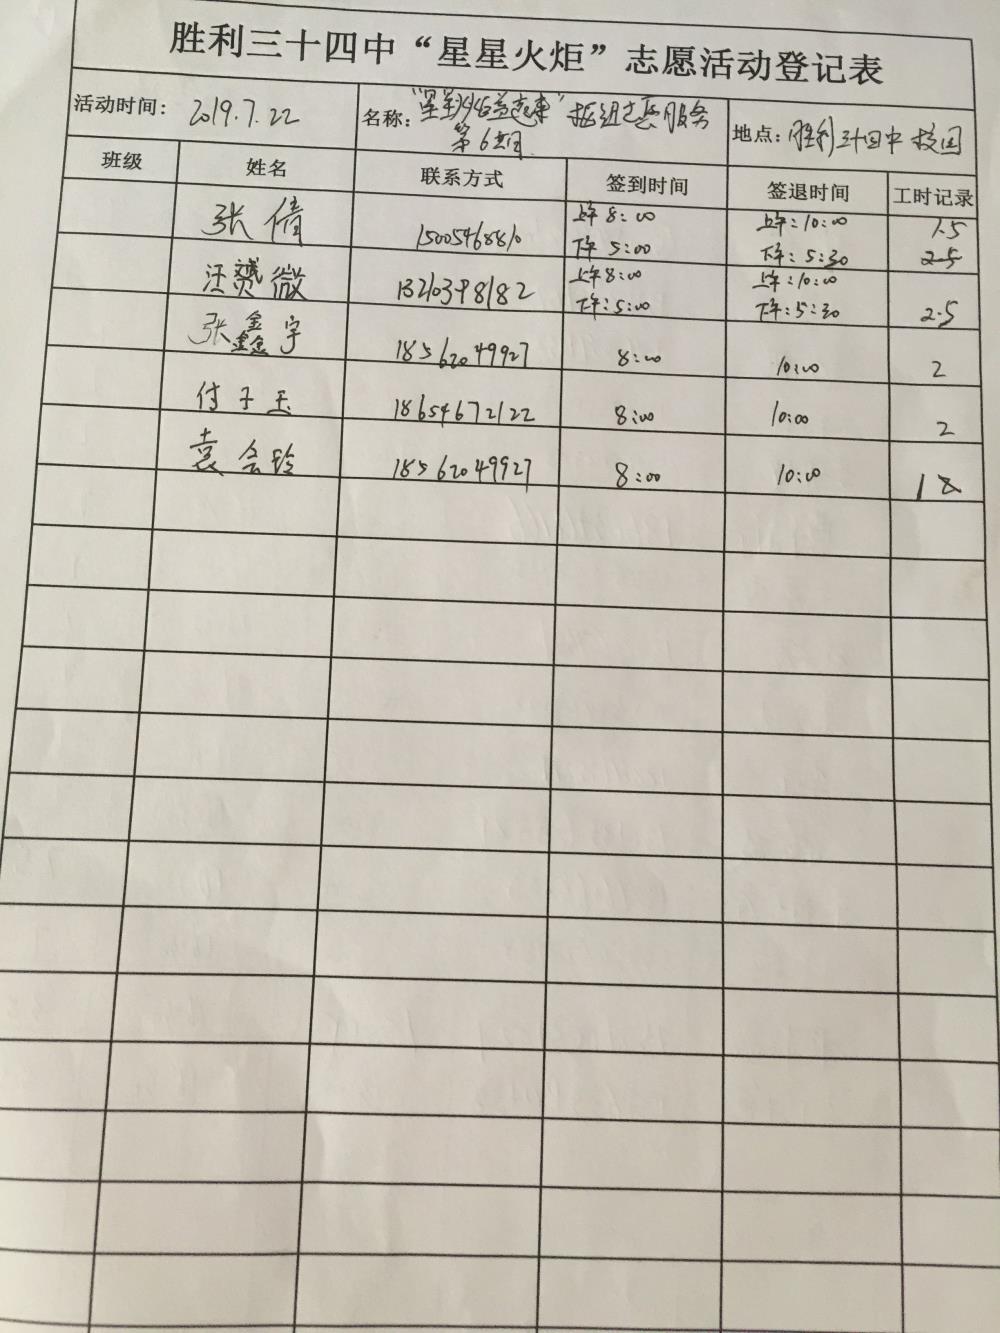 胜利三十四中“星星火炬”志愿活动登记表
活动时间: 2019.7.22 名称: 志愿服务 地点: 胜利三十四中校园
第6期
班级 姓名 联系方式 签到时间 签退时间 工时记录
张倩 15005468810 上午8:00 上午:10:00 1.5
下午5:00 下午:5:30 2.5
汪赟微 13210398182 上午8:00 上午:10:00
下午:5:00 下午:5:30 2.5
张鑫宇 18562049927 8:00 10:00 2
付子玉 18654672122 8:00 10:00 2
袁会玲 18562049927 8:00 10:00